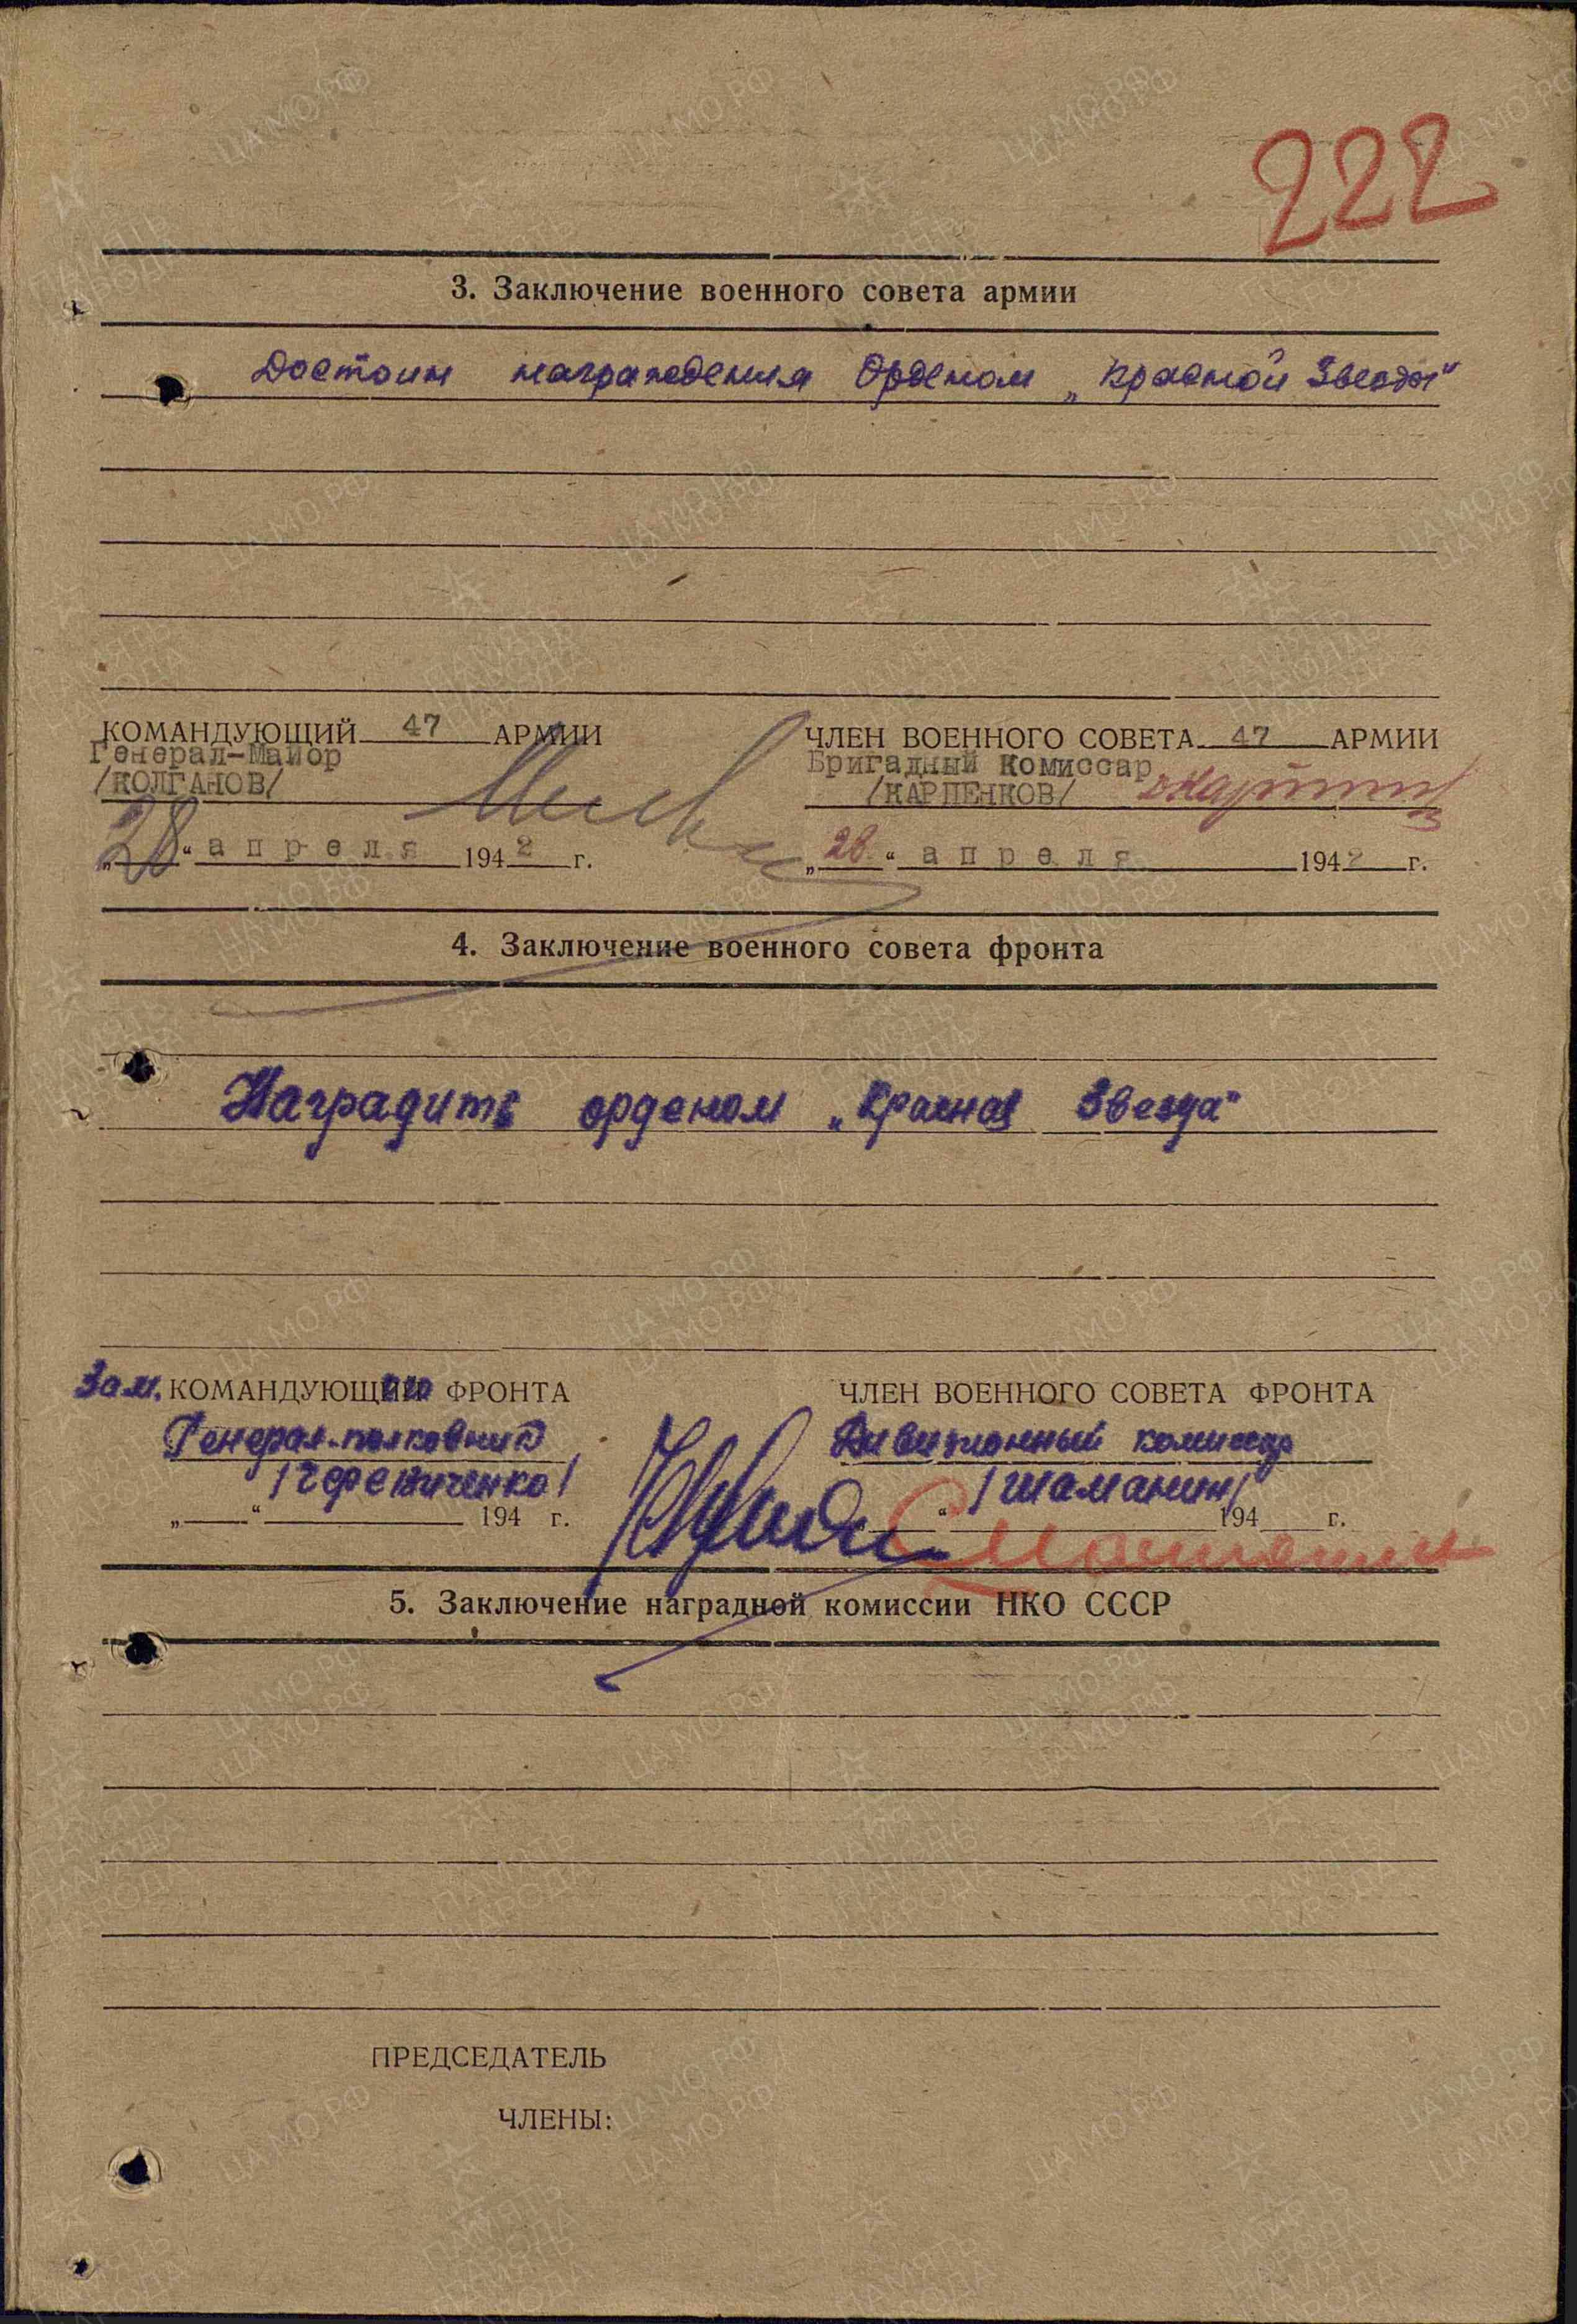 222
3. Заключение военного совета армии
Достоин награждения Орденом „Красной Звезды"
КОМАНДУЮЩИЙ 47 АРМИИ
Генерал-Майор
/КОЛГАНОВ/
„28“ апреля 1942 г.
ЧЛЕН ВОЕННОГО СОВЕТА 47 АРМИИ
Бригадный Комиссар
/КАРПЕНКОВ/
„28“ апреля 1942 г.
4. Заключение военного совета фронта
Наградить орденом „Красная Звезда"
Зам. КОМАНДУЮЩЕГО ФРОНТА
Генерал-полковник
/Черевиченко/
„ “ 194 г.
ЧЛЕН ВОЕННОГО СОВЕТА ФРОНТА
Дивизионный комиссар
/Шаманин/
“ 194 г.
5. Заключение наградной комиссии НКО СССР
ПРЕДСЕДАТЕЛЬ
ЧЛЕНЫ:
ПАМЯТЬ НАРОДА
ЦА МО РФ